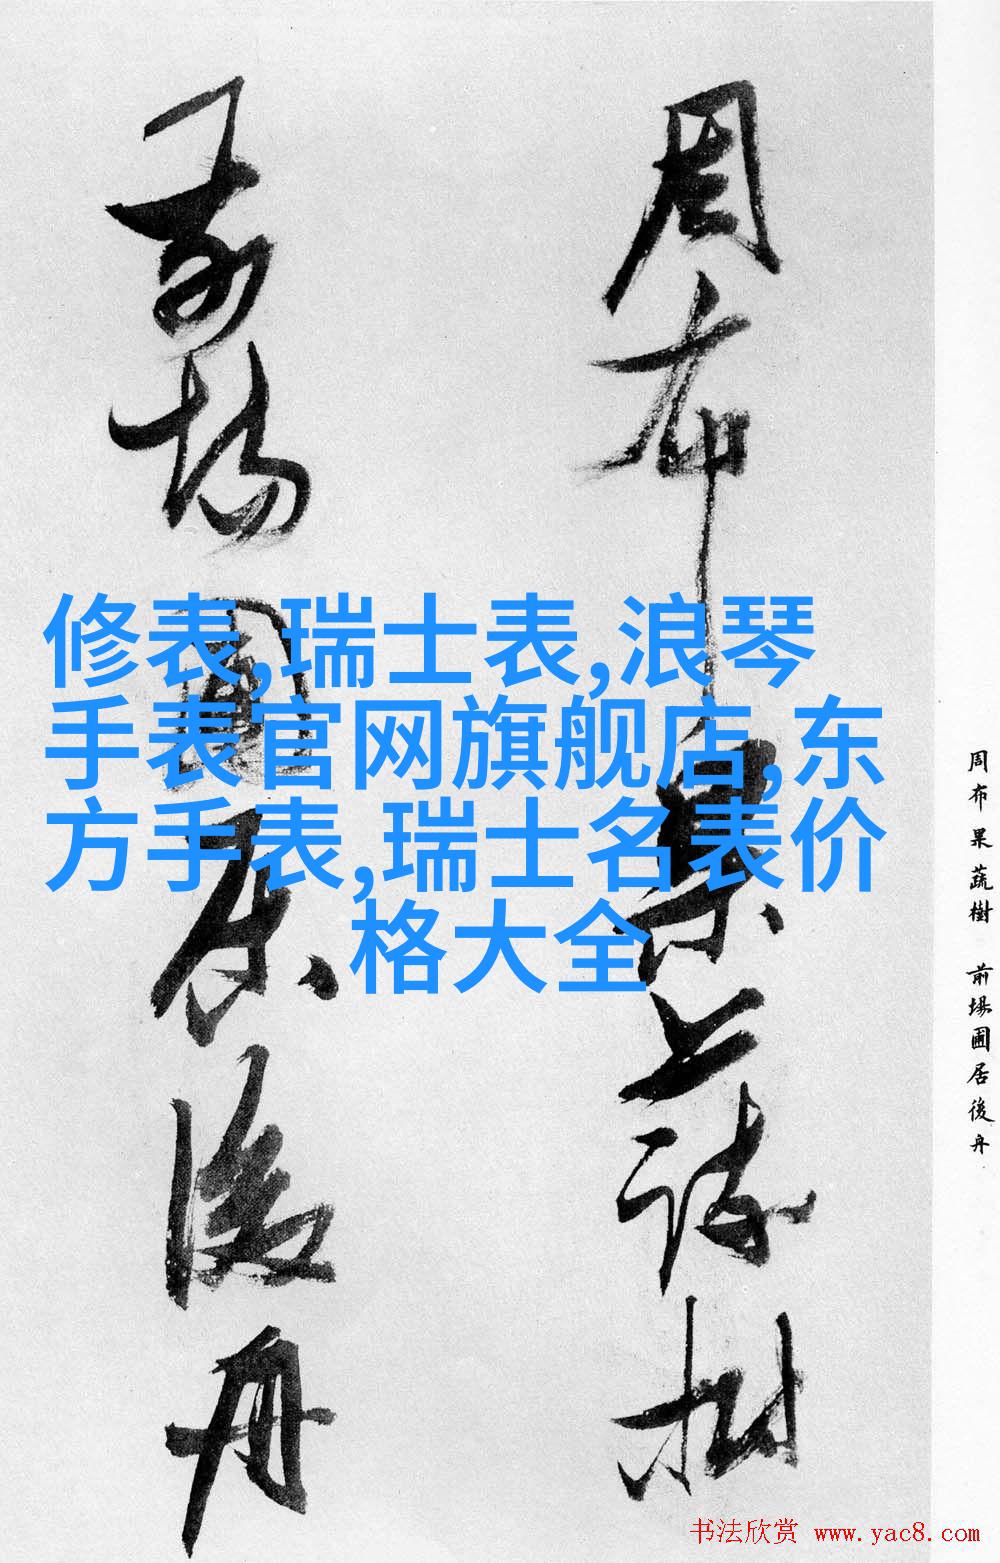 周布果蔬樹
前場圃居後舟
修表,瑞士表,浪琴
手表官网旗舰店,东
方手表,瑞士名表价
格大全
周布果蔬樹 前場圃居後舟
书法欣赏 www.yac8.com